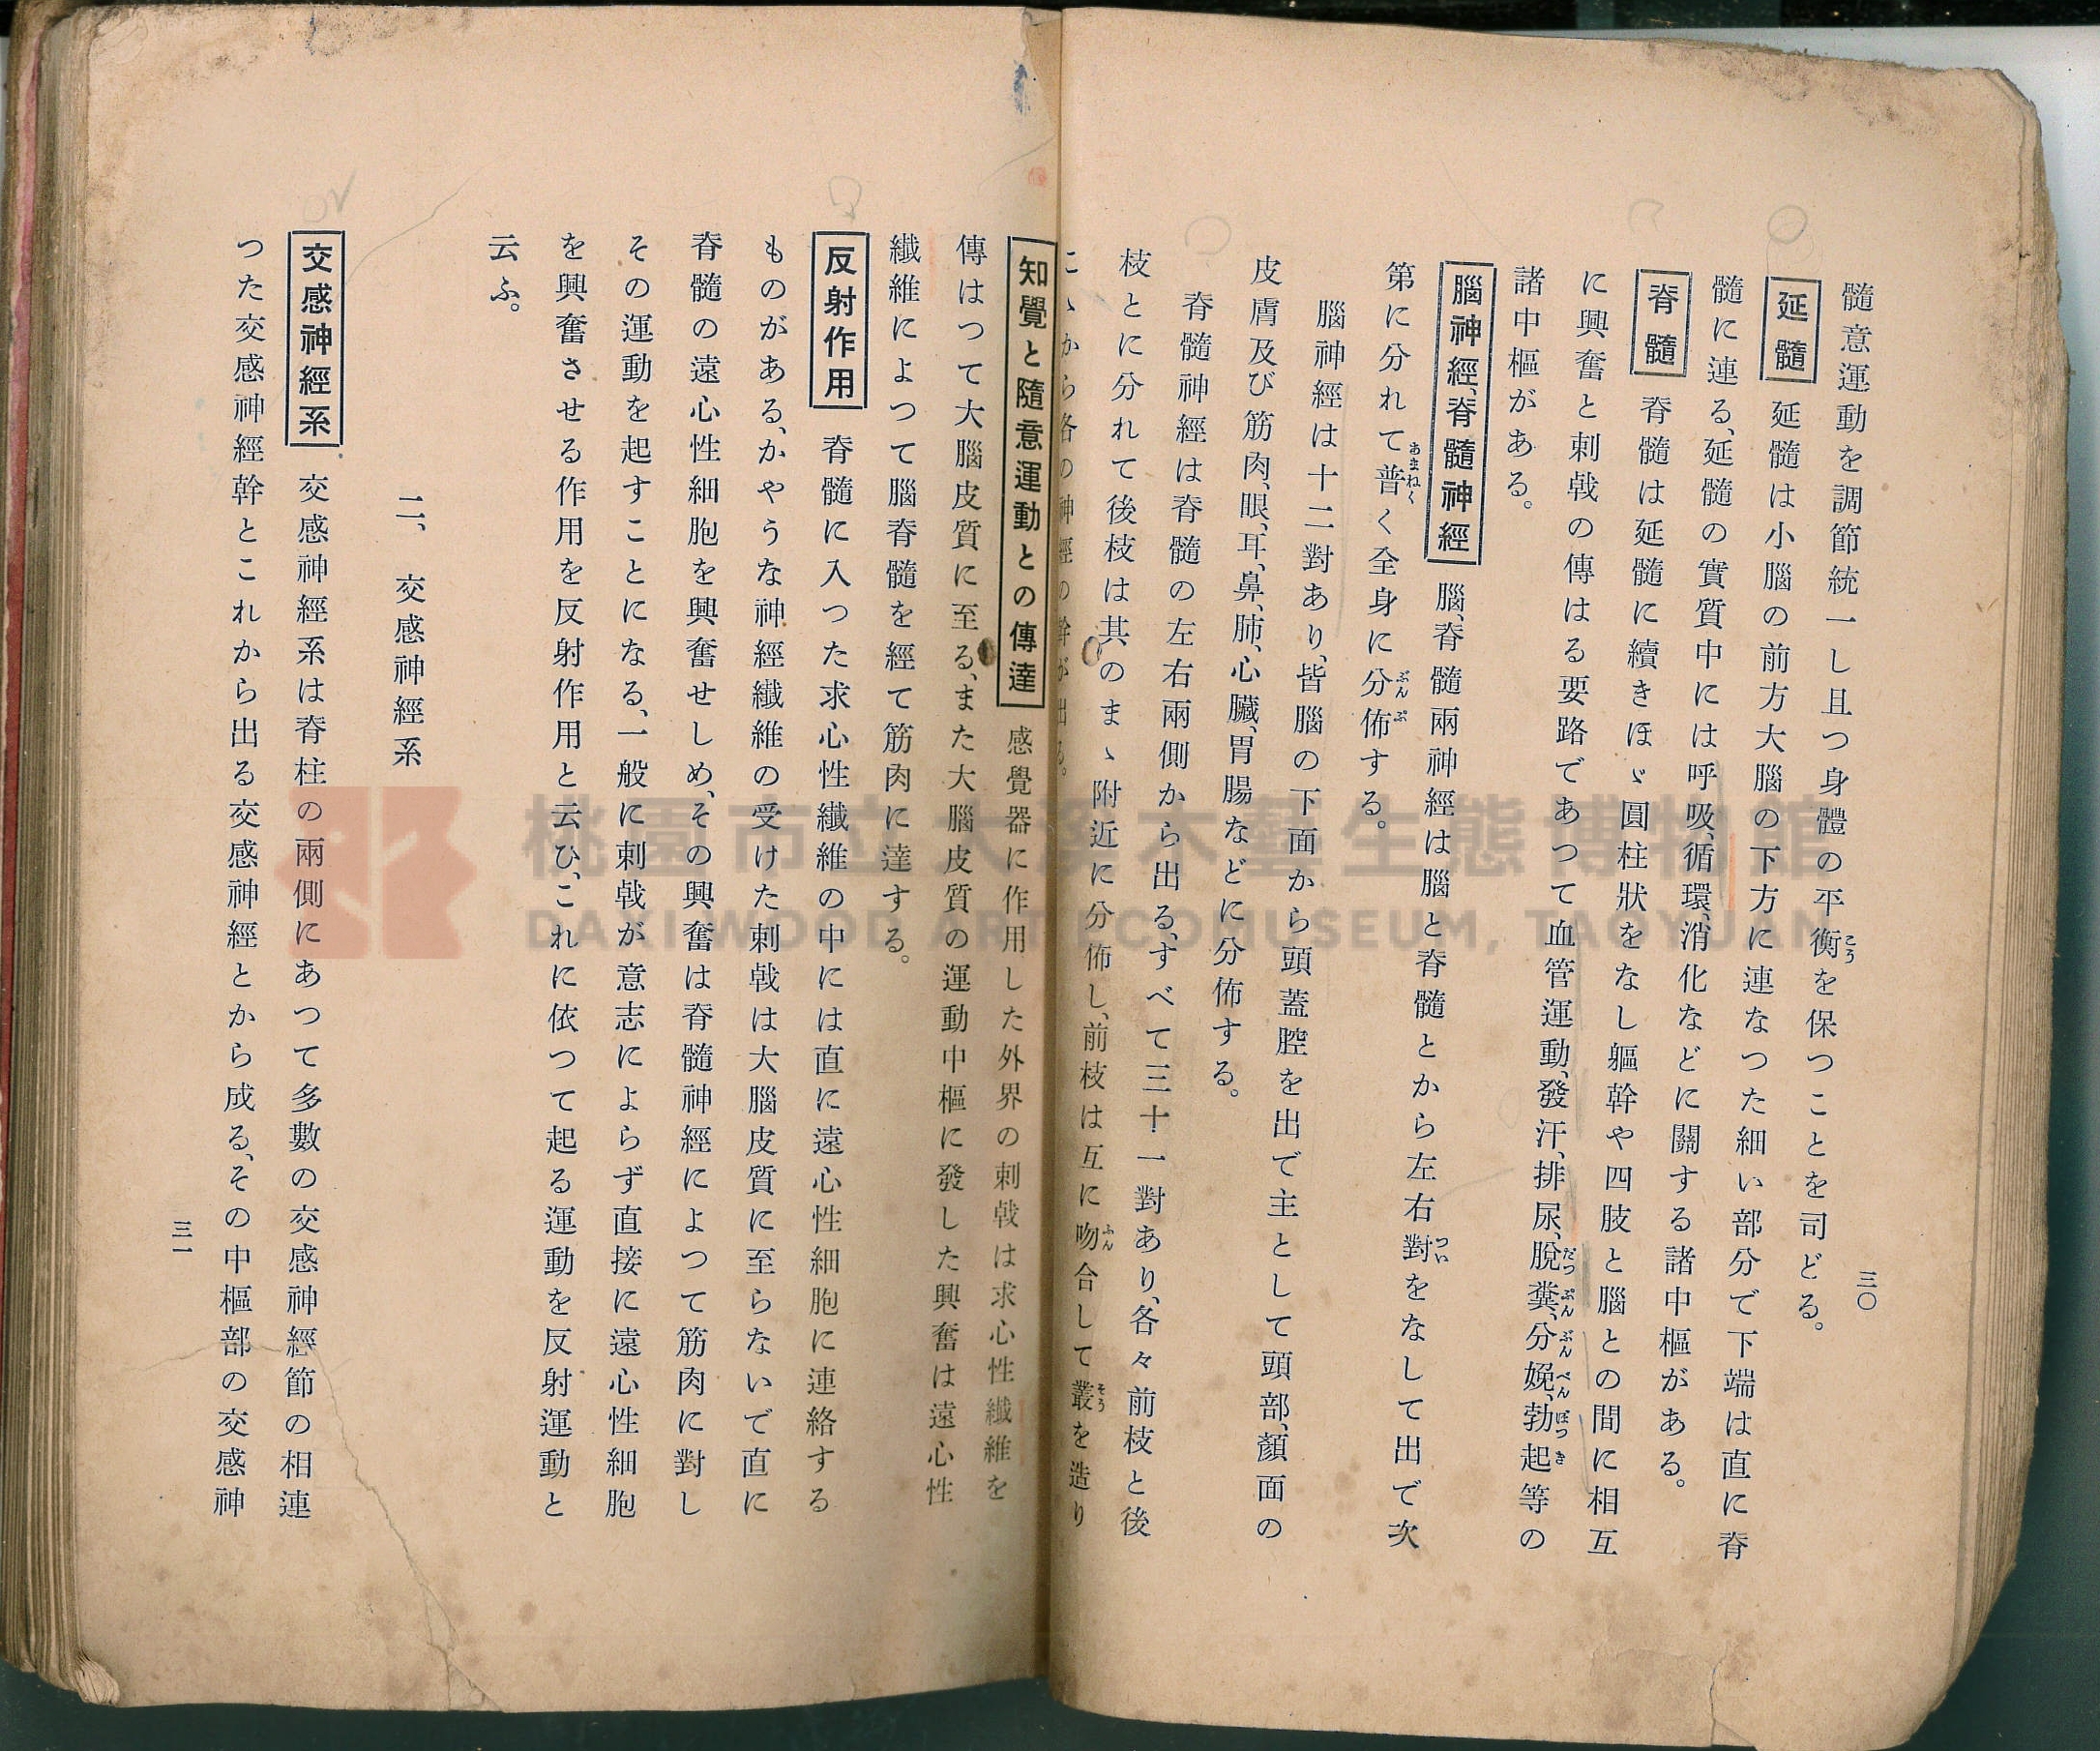 三〇
髓意運動を調節統一し且つ身體の平衡を保つことを司どる。
延髓 延髓は小腦の前方大腦の下方に連なつた細い部分で下端は直に脊
髓に連る、延髓の實質中には呼吸、循環、消化などに關する諸中樞がある。
脊髓 脊髓は延髓に續きほゞ圓柱狀をなし軀幹や四肢と腦との間に相互
に興奮と刺戟の傳はる要路であつて血管運動、發汗、排尿、脫糞、分娩、勃起等の
諸中樞がある。
腦神經、脊髓神經 腦、脊髓兩神經は腦と脊髓とから左右對をなして出で次
第に分れて普く全身に分佈する。
腦神經は十二對あり、皆腦の下面から頭蓋腔を出で主として頭部、顏面の
皮膚及び筋肉、眼、耳、鼻、肺、心臟、胃腸などに分佈する。
脊髓神經は脊髓の左右兩側から出る、すべて三十一對あり、各々前枝と後
枝とに分れて後枝は其のまゝ附近に分佈し、前枝は互に吻合して叢を造り
こゝから各の神經の幹が出る。
知覺と隨意運動との傳達 感覺器に作用した外界の刺戟は求心性纖維を
傳はつて大腦皮質に至る、また大腦皮質の運動中樞に發した興奮は遠心性
纖維によつて腦脊髓を經て筋肉に達する。
反射作用 脊髓に入つた求心性纖維の中には直に遠心性細胞に連絡する
ものがある、かやうな神經纖維の受けた刺戟は大腦皮質に至らないで直に
脊髓の遠心性細胞を興奮せしめ、その興奮は脊髓神經によつて筋肉に對し
その運動を起すことになる、一般に刺戟が意志によらず直接に遠心性細胞
を興奮させる作用を反射作用と云ひ、これに依つて起る運動を反射運動と
云ふ。
二、 交感神經系
交感神經系 交感神經系は脊柱の兩側にあつて多數の交感神經節の相連
つた交感神經幹とこれから出る交感神經とから成る、その中樞部の交感神
三一
桃園市立大溪木藝生態博物館
DAXI WOOD ART ECOMUSEUM, TAOYUAN